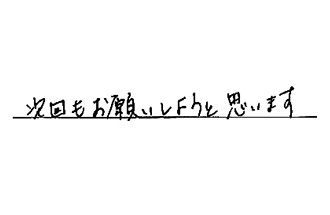 次回もお願いしようと思います